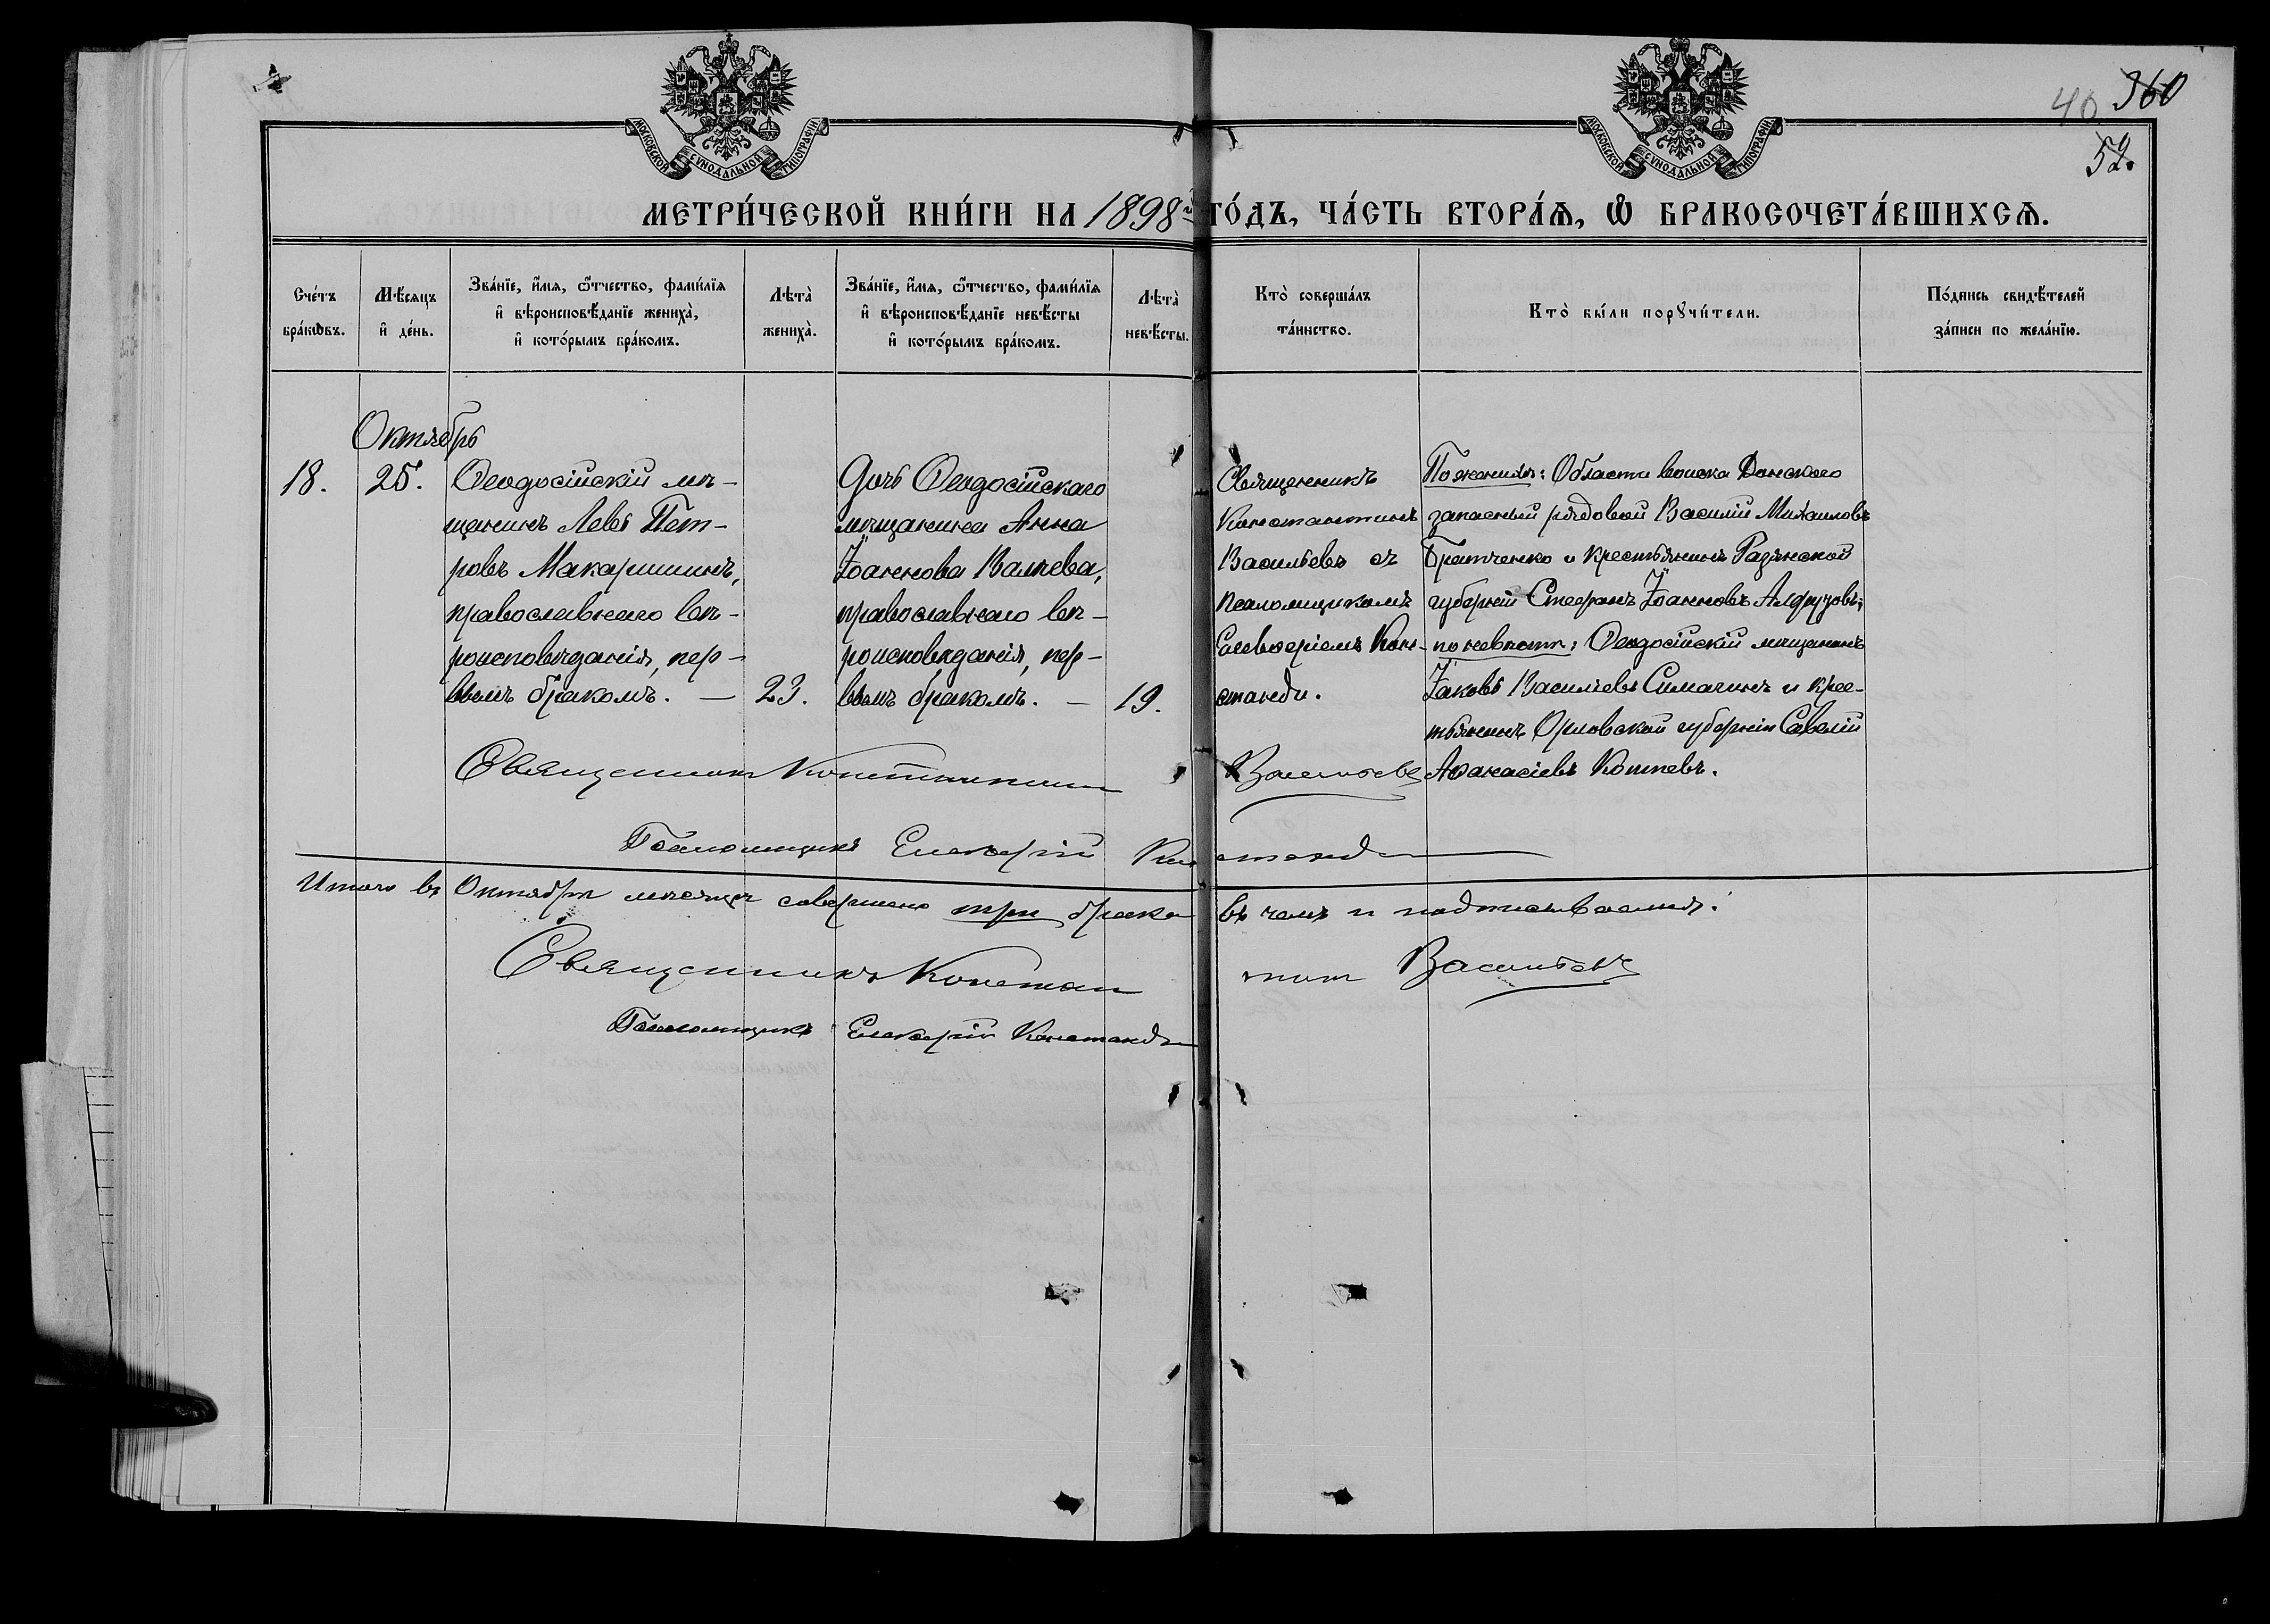 40 360
52.
МОСКОВСКОЙ СѴНОДАЛЬНОЙ ТИПОГРАФІИ.
МОСКОВСКОЙ СѴНОДАЛЬНОЙ ТИПОГРАФІИ.
МЕТРИ́ЧЕСКОЙ КНИ́ГИ НА 1898й ГО́ДЪ, ЧА́СТЬ ВТОРА́Ѧ, Ѡ҆ БРАКОСОЧЕТА́ВШИХСѦ.
Сче́тъ
бра́кѡвъ.
Мѣ́сяцъ
и҆ де́нь.
Зва́нїе, и҆́мѧ, ѻ҆́тчество, фами́лїѧ
и҆ вѣроисповѣ́данїе жениха̀,
и҆ кото́рымъ бра́комъ.
Лѣта̀
жениха̀.
Зва́нїе, и҆́мѧ, ѻ҆́тчество, фами́лїѧ
и҆ вѣроисповѣ́данїе невѣ́сты
и҆ кото́рымъ бра́комъ.
Лѣта̀
невѣ́сты.
Кто̀ соверша́лъ
та́инство.
Кто̀ бы́ли порꙋчи́тели.
По́дпись свидѣ́телей
за́писи по жела́нїю.
Октябрь
18.
25.
Ѳеодосійскій мѣ-
щанинъ Левъ Пет-
ровъ Макаришинъ,
православнаго вѣ-
роисповѣданія, пер-
вымъ бракомъ. —
23.
Дочь Ѳеодосійскаго
мѣщанина Анна
Іоаннова Валиева,
православнаго вѣ-
роисповѣданія, пер-
вымъ бракомъ. —
19.
Священникъ
Константинъ
Васильевъ съ
псаломщикомъ
Елевѳеріемъ Кон-
станди.
По женихѣ: Области войска Донскаго
запасный рядовой Василій Михаиловъ
Братченко и крестьянинъ Рязанской
губерніи Стефанъ Іоанновъ Алфузовъ;
по невѣстѣ: Ѳеодосійскій мѣщанинъ
Іаковъ Васильевъ Симагинъ и крес-
тьянинъ Орловской губерніи Савелій
Аѳанасіевъ Коптевъ.
Священникъ Константинъ Васильевъ
Псаломщикъ Елевѳерій Констанди
Итого въ Октябрѣ мѣсяцѣ совершено три брака въ чемъ и подписываемся:
Священникъ Константинъ Васильевъ
Псаломщикъ Елевѳерій Констанди